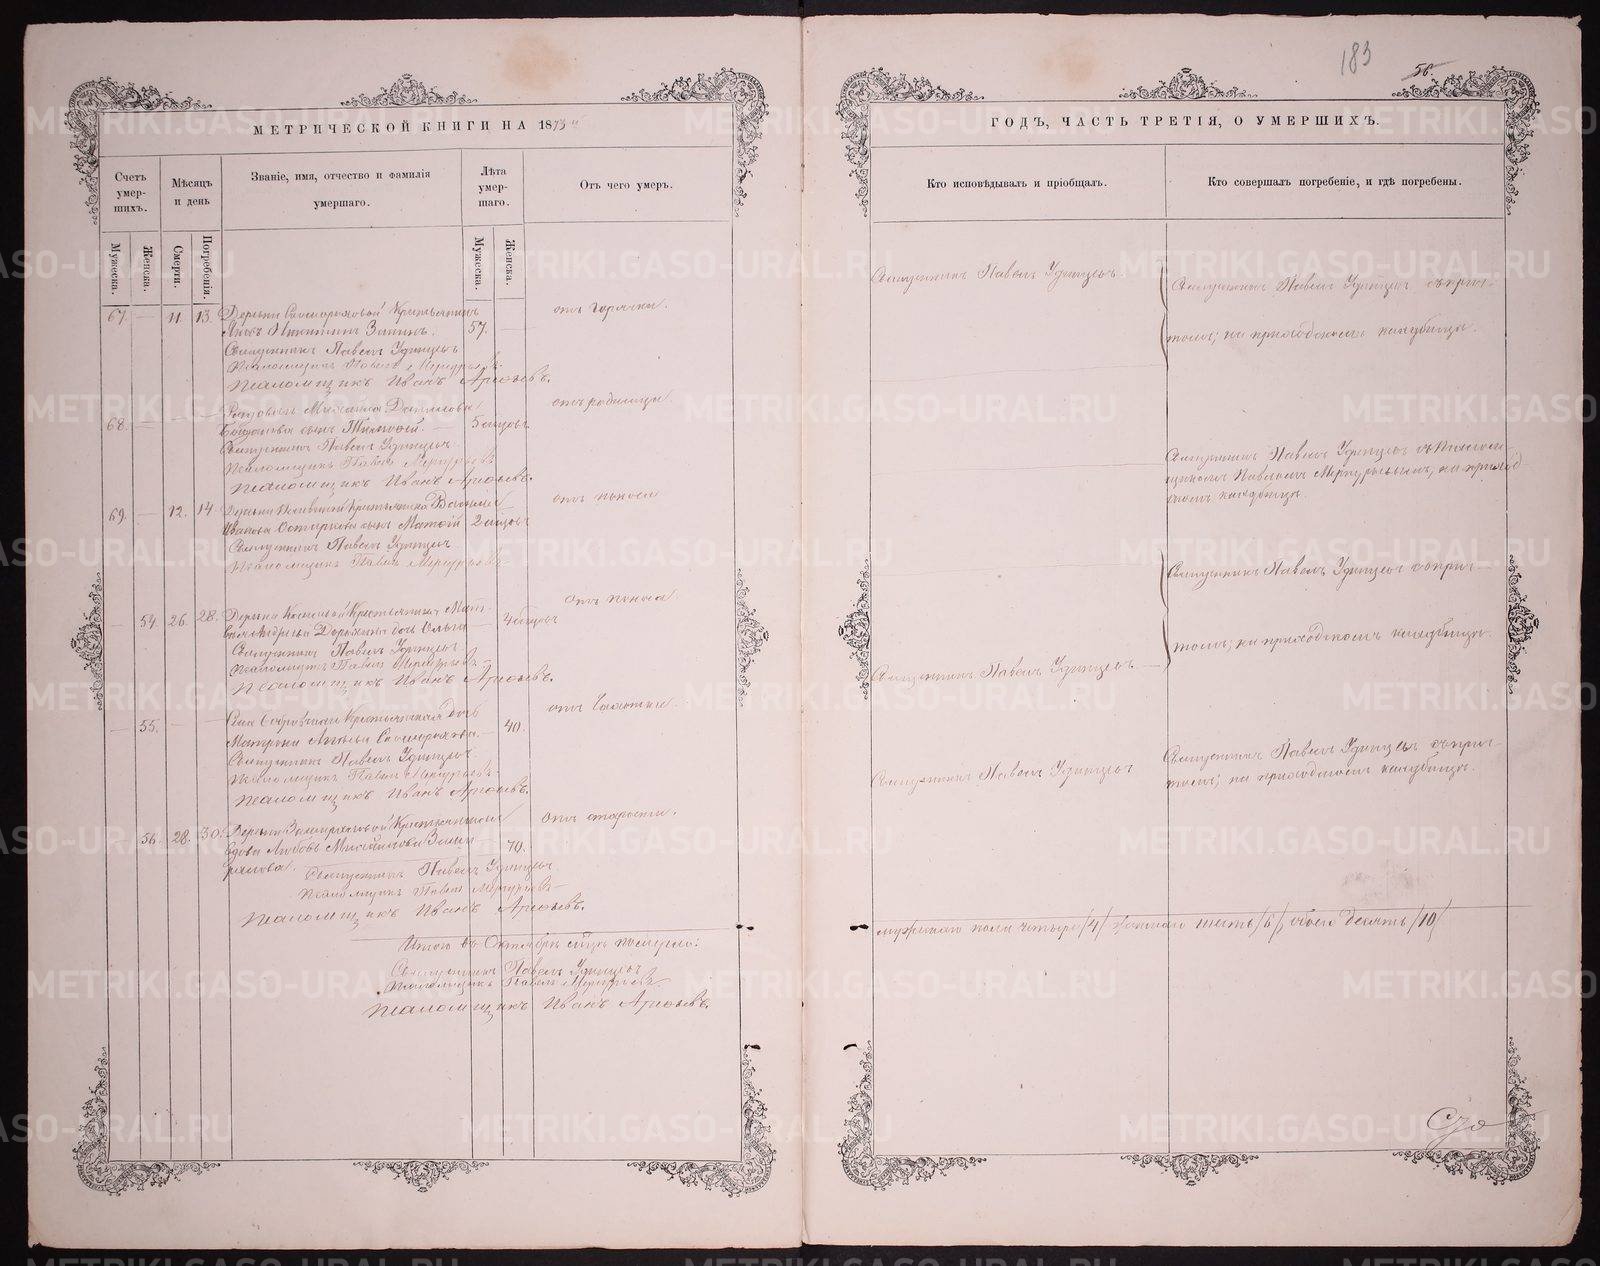 183
56.
МЕТРИЧЕСКОЙ КНИГИ НА 1873
ГОДЪ, ЧАСТЬ ТРЕТІЯ, О УМЕРШИХЪ.
Счетъ умер-шихъ.
Мѣсяцъ и день
Званіе, имя, отчество и фамилія умершаго.
Лѣта умер-шаго.
Отъ чего умеръ.
Кто исповѣдывалъ и пріобщалъ.
Кто совершалъ погребеніе, и гдѣ погребены.
Мужеска.
Женска.
Смерти.
Погребенія.
Мужеска.
Женска.
67. — 11. 13. Деревни Крестьянинъ
Никитинъ Зининъ. 57. отъ горячки.
Священникъ Павелъ Удинцевъ
Псаломщикъ Павелъ Меркурьевъ
Псаломщикъ Иванъ Арефьевъ.
Священникъ Павелъ Удинцевъ.
Священникъ Павелъ Удинцевъ съ прич-
томъ; на приходскомъ кладбищѣ.
68. — — — Михаила Данилова
сынъ 5 мѣсяц. отъ родимца.
Священникъ Павелъ Удинцевъ.
Псаломщикъ Павелъ Меркурьевъ
Псаломщикъ Иванъ Арефьевъ.
Священникъ Павелъ Удинцевъ съ Псалом-
щикомъ Павломъ Меркурьевымъ, на приход-
скомъ кладбищѣ.
69. — 12. 14. Деревни Крестьянина Василія
Иванова сынъ 2 мѣсяц. отъ поноса
Священникъ Павелъ Удинцевъ
Псаломщикъ Павелъ Меркурьевъ
Священникъ Павелъ Удинцевъ съ прич-
томъ, на приходскомъ кладбищѣ.
— 54. 26. 28. Деревни Крестьянина Мат-
вея Андреева дочь Ольга — 4 мѣсяцовъ Отъ поноса
Священникъ Павелъ Удинцевъ
Псаломщикъ Павелъ Меркурьевъ
Псаломщикъ Иванъ Арефьевъ.
Священникъ Павелъ Удинцевъ. —
— 55. — — Села Крестьянская дочь
Матрона 40. отъ чахотки.
Священникъ Павелъ Удинцевъ
Псаломщикъ Павелъ Меркурьевъ
Псаломщикъ Иванъ Арефьевъ.
Священникъ Павелъ Удинцевъ
Священникъ Павелъ Удинцевъ съ прич-
томъ; на приходскомъ кладбищѣ.
— 56. 28. 30. Деревни Крестьянская
вдова Любовь 70. Отъ старости.
Священникъ Павелъ Удинцевъ
Псаломщикъ Павелъ Меркурьевъ
Псаломщикъ Иванъ Арефьевъ.
Итого въ Октябрѣ мѣсяцѣ померло:
мужескаго пола четыре /4/ женскаго шесть /6/, обоего десять /10/
Священникъ Павелъ Удинцевъ
Псаломщикъ Павелъ Меркурьевъ
Псаломщикъ Иванъ Арефьевъ.
METRIKI.GASO-URAL.RU